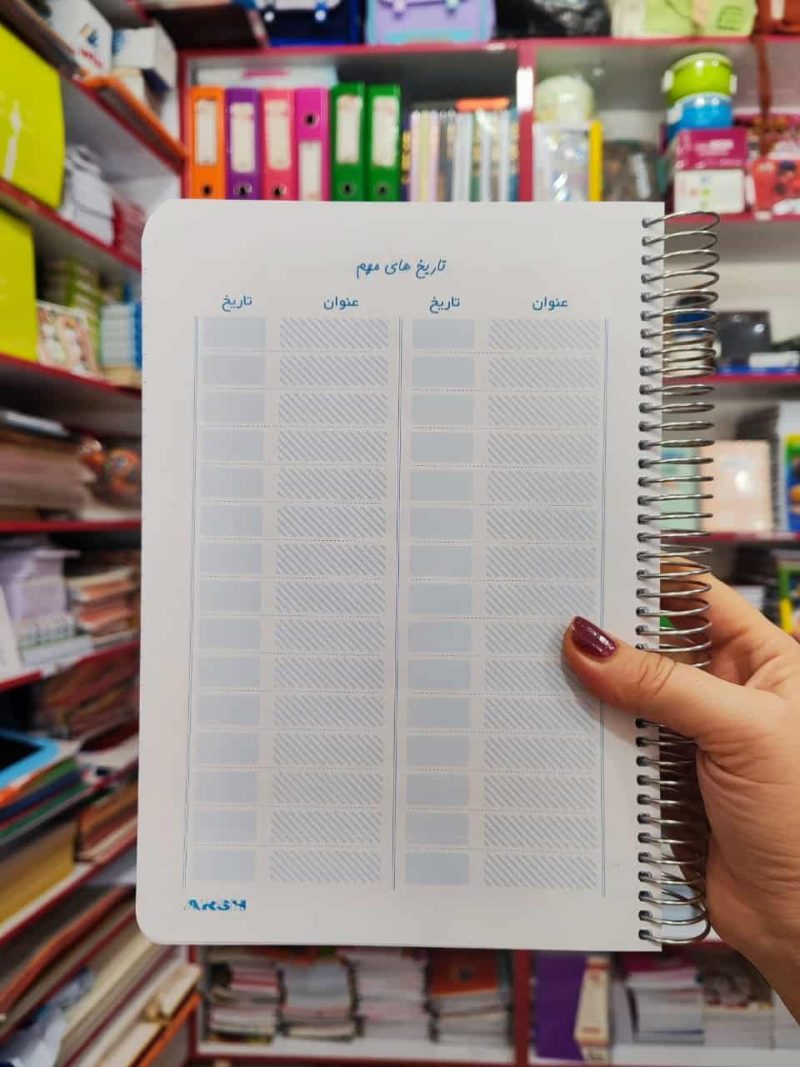 تاریخ های مهم
عنوان تاریخ عنوان تاریخ
ARSH